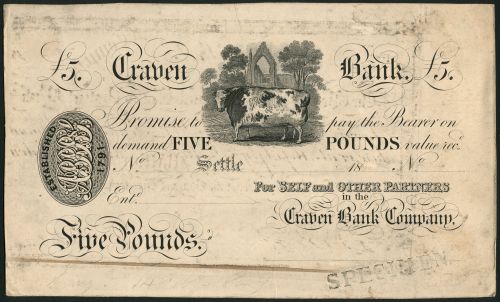 £5. Craven Bank, £5.
Promise to pay the Bearer on
demand FIVE POUNDS value rec.
No Settle 18 No
For SELF and OTHER PARTNERS
in the
Ent. Craven Bank Company.
Five Pounds.
ESTABLISHED 1791
SPECIMEN